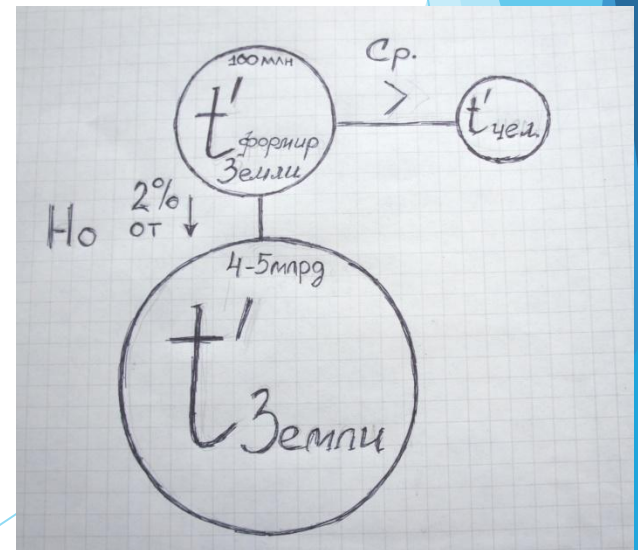 100 млн
t' формир
Земли
Ср.
>
t' чел.
Но
2%
от ↓
4-5 млрд
t' Земли